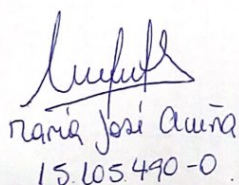 María José Acuña
15.105.490-0